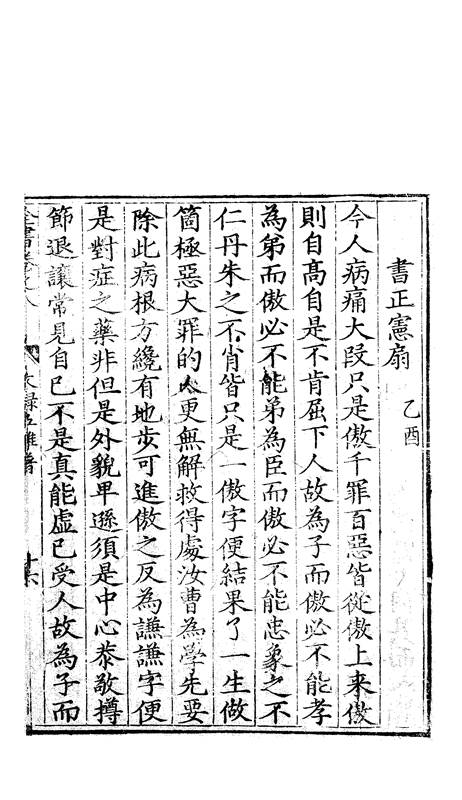 書正憲扇 乙酉
今人病痛大段只是傲千罪百惡皆從傲上來傲
則自高自是不肯屈下人故為子而傲必不能孝
為弟而傲必不能弟為臣而傲必不能忠象之不
仁丹朱之不肖皆只是一傲字便結果了一生做
箇極惡大罪的人更無解救得處汝曹為學先要
除此病根方纔有地步可進傲之反為謙謙字便
是對症之藥非但是外貌卑遜須是中心恭敬撙
節退讓常見自己不是真能虛己受人故為子而
全書卷之八 文錄五雜著 十六